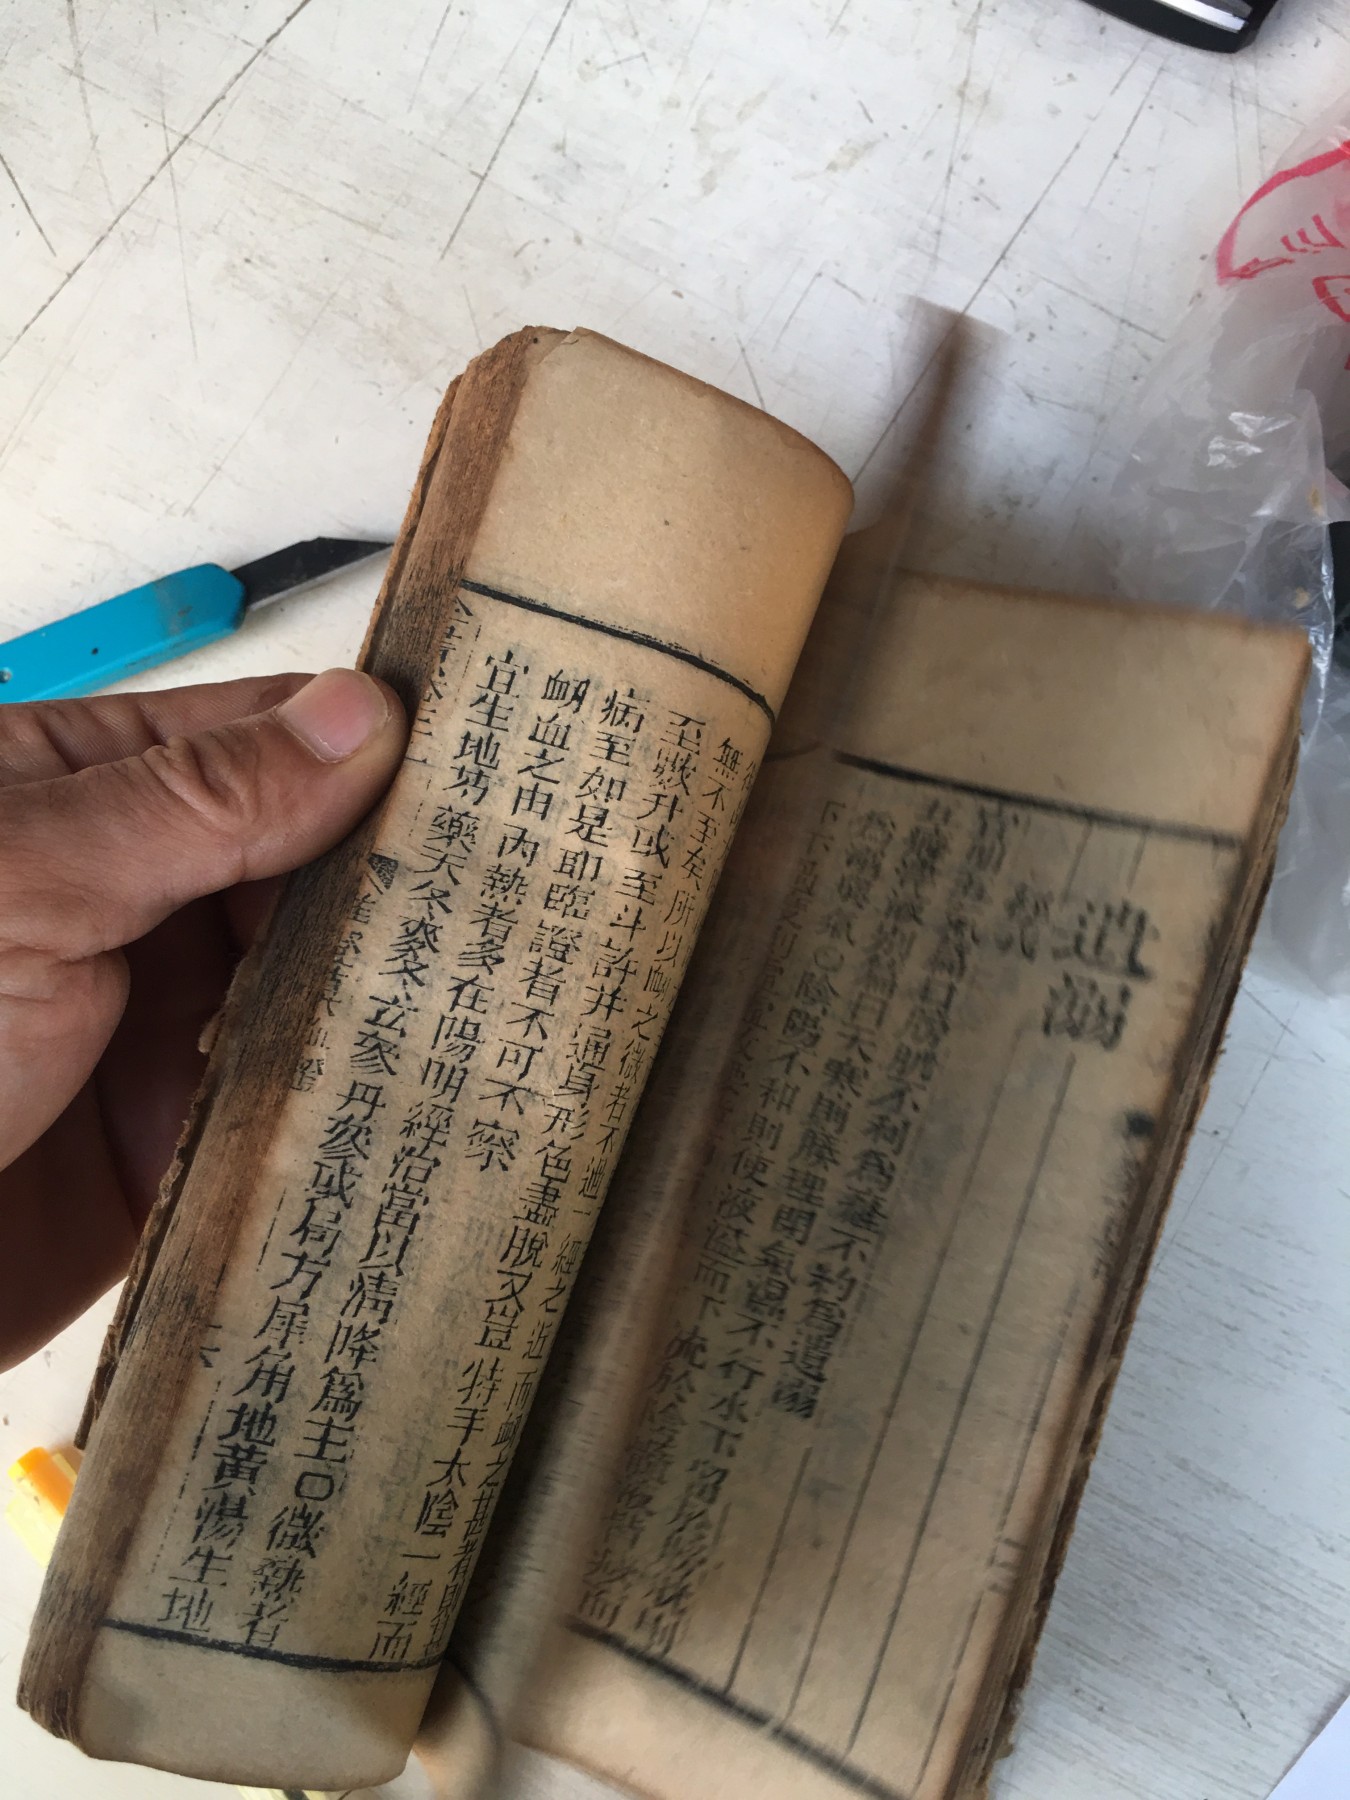 遺溺
宣明五氣篇曰膀胱不利爲癃不約爲遺溺
五癃津液別篇曰天寒則腠理閉氣濕不行水下留於膀胱則
爲溺與氣○陰陽不和則使液溢而下流於陰髓液皆減而
無不至矣所以衂之微者不過一經之近而衂之甚者則
至數升或至斗許并通身形色盡脫又豈特手太陰一經而
病至如是耶臨證者不可不察
衂血之由內熱者多在陽明經治當以清降爲主○微熱者
宜生地芍藥天冬麥冬玄參丹參或局方犀角地黃湯生地
雜證謨血證